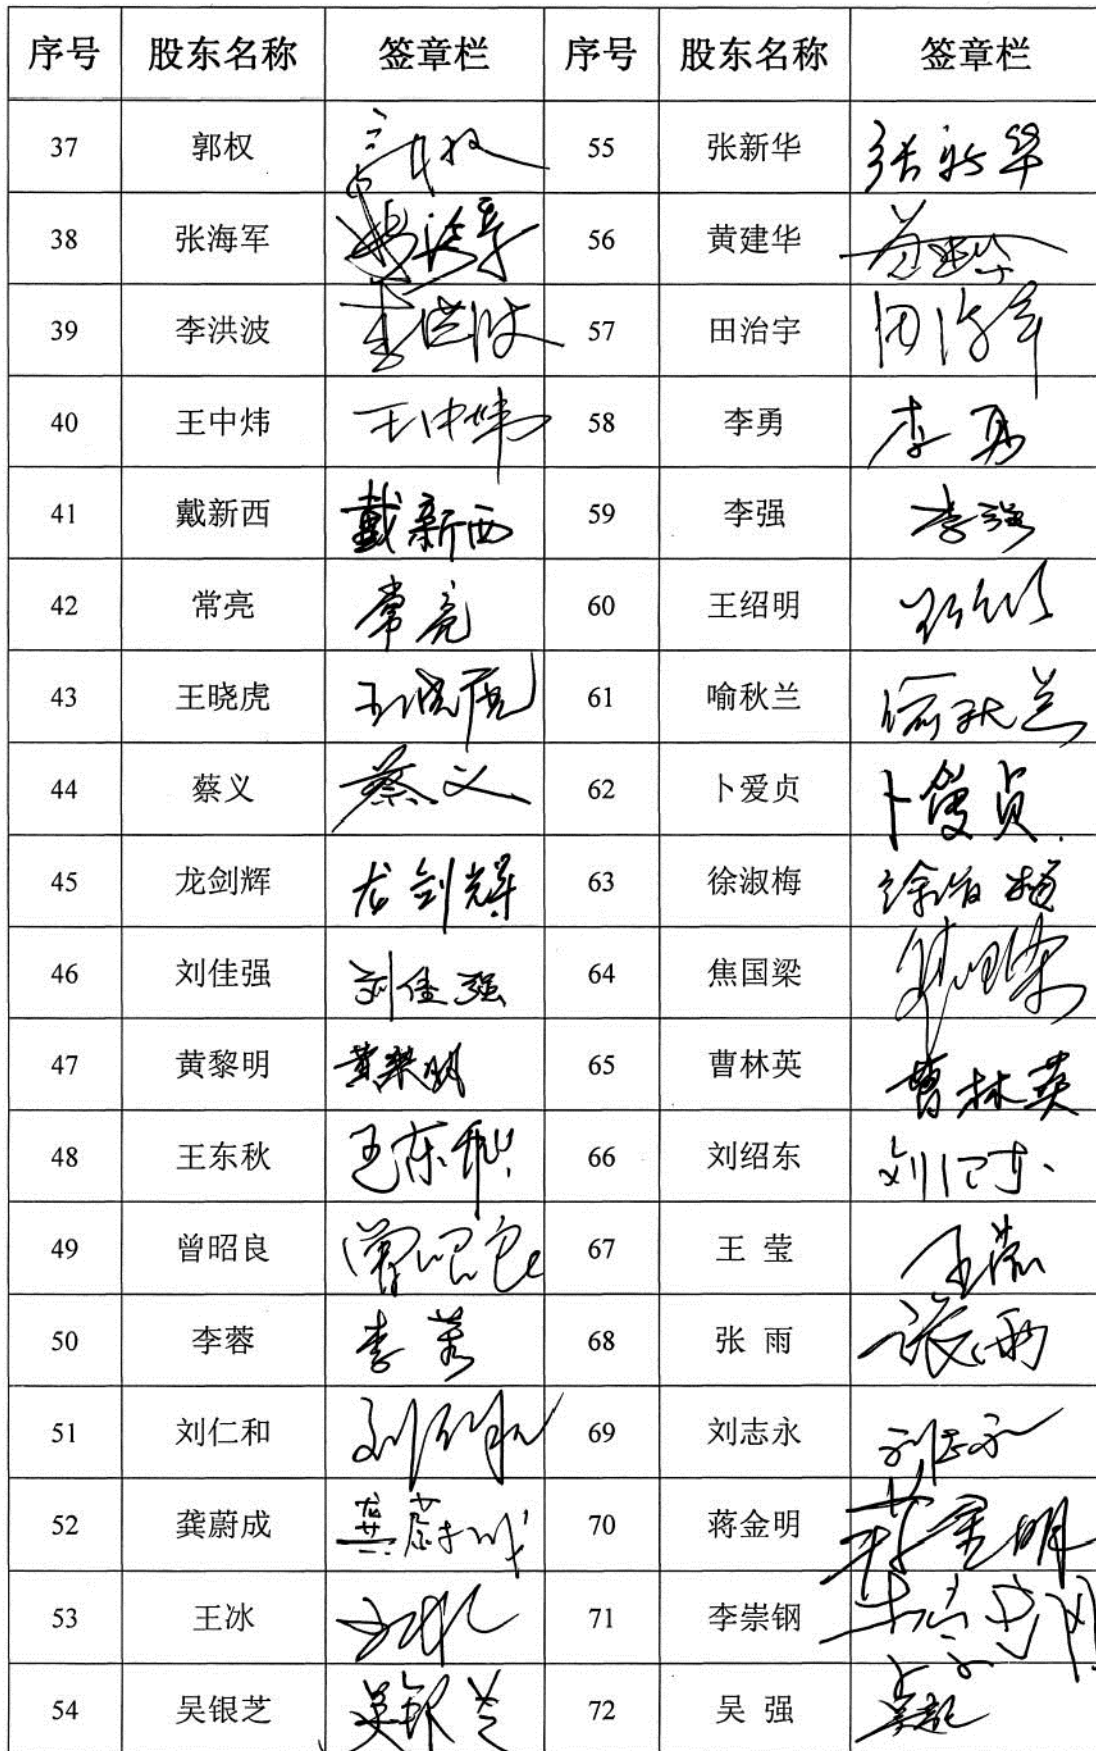 序号 股东名称 签章栏 序号 股东名称 签章栏
37 郭权 郭权 55 张新华 张新华
38 张海军 张海军 56 黄建华 黄建华
39 李洪波 李洪波 57 田治宇 田治宇
40 王中炜 王中炜 58 李勇 李勇
41 戴新西 戴新西 59 李强 李强
42 常亮 常亮 60 王绍明
43 王晓虎 王晓虎 61 喻秋兰 喻秋兰
44 蔡义 蔡义 62 卜爱贞 卜爱贞
45 龙剑辉 龙剑辉 63 徐淑梅 徐淑梅
46 刘佳强 刘佳强 64 焦国梁 焦国梁
47 黄黎明 黄黎明 65 曹林英 曹林英
48 王东秋 王东秋 66 刘绍东 刘绍东
49 曾昭良 曾昭良 67 王 莹 王莹
50 李蓉 李蓉 68 张 雨 张雨
51 刘仁和 刘仁和 69 刘志永 刘志永
52 龚蔚成 龚蔚成 70 蒋金明 蒋金明
53 王冰 王冰 71 李崇钢 李崇钢
54 吴银芝 吴银芝 72 吴 强 吴强